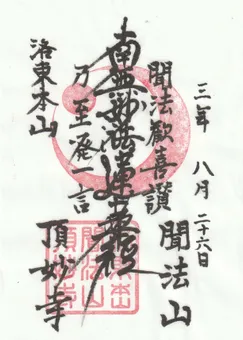 三年 八月 二十六日
聞法山
聞法歓喜讃
南無妙法蓮華経
乃至発一言
洛東本山
頂妙寺